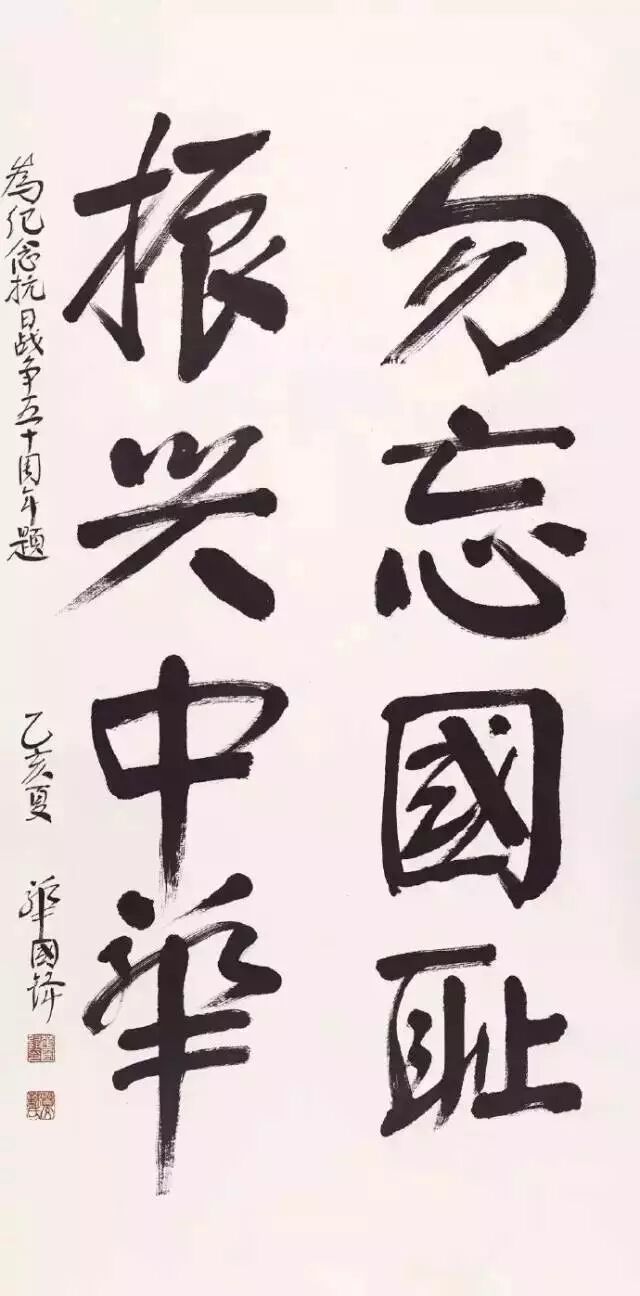 勿忘國耻
振兴中華
為纪念抗日战争五十周年题
乙亥夏 華國锋